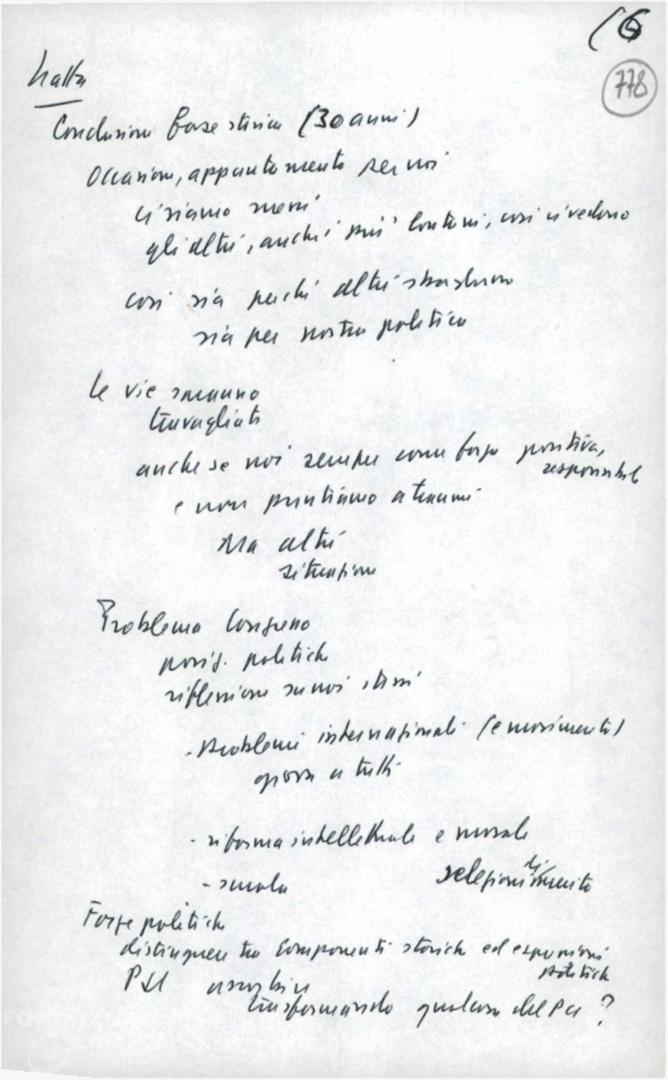 16
778
Natta
Conclusione forse storica (30 anni)
Occasione, appuntamento per noi
Ci siamo messi
gli altri, anche i più lontani, così ci vedono
così sia perché altri
sia per nostra politica
Le vie saranno
travagliate
anche se noi sempre come forza positiva,
responsabile
e non puntiamo a
Ma altri
situazione
Problema Congresso
posiz. politiche
riflessione su noi stessi
- Problemi internazionali (e movimenti)
a tutti
- riforma intellettuale e morale
- scuola
di
selezioni merito
Forze politiche
distinguere tra componenti storiche ed espressioni
politiche
PSI assorbire
trasformando qualcosa del PCI ?